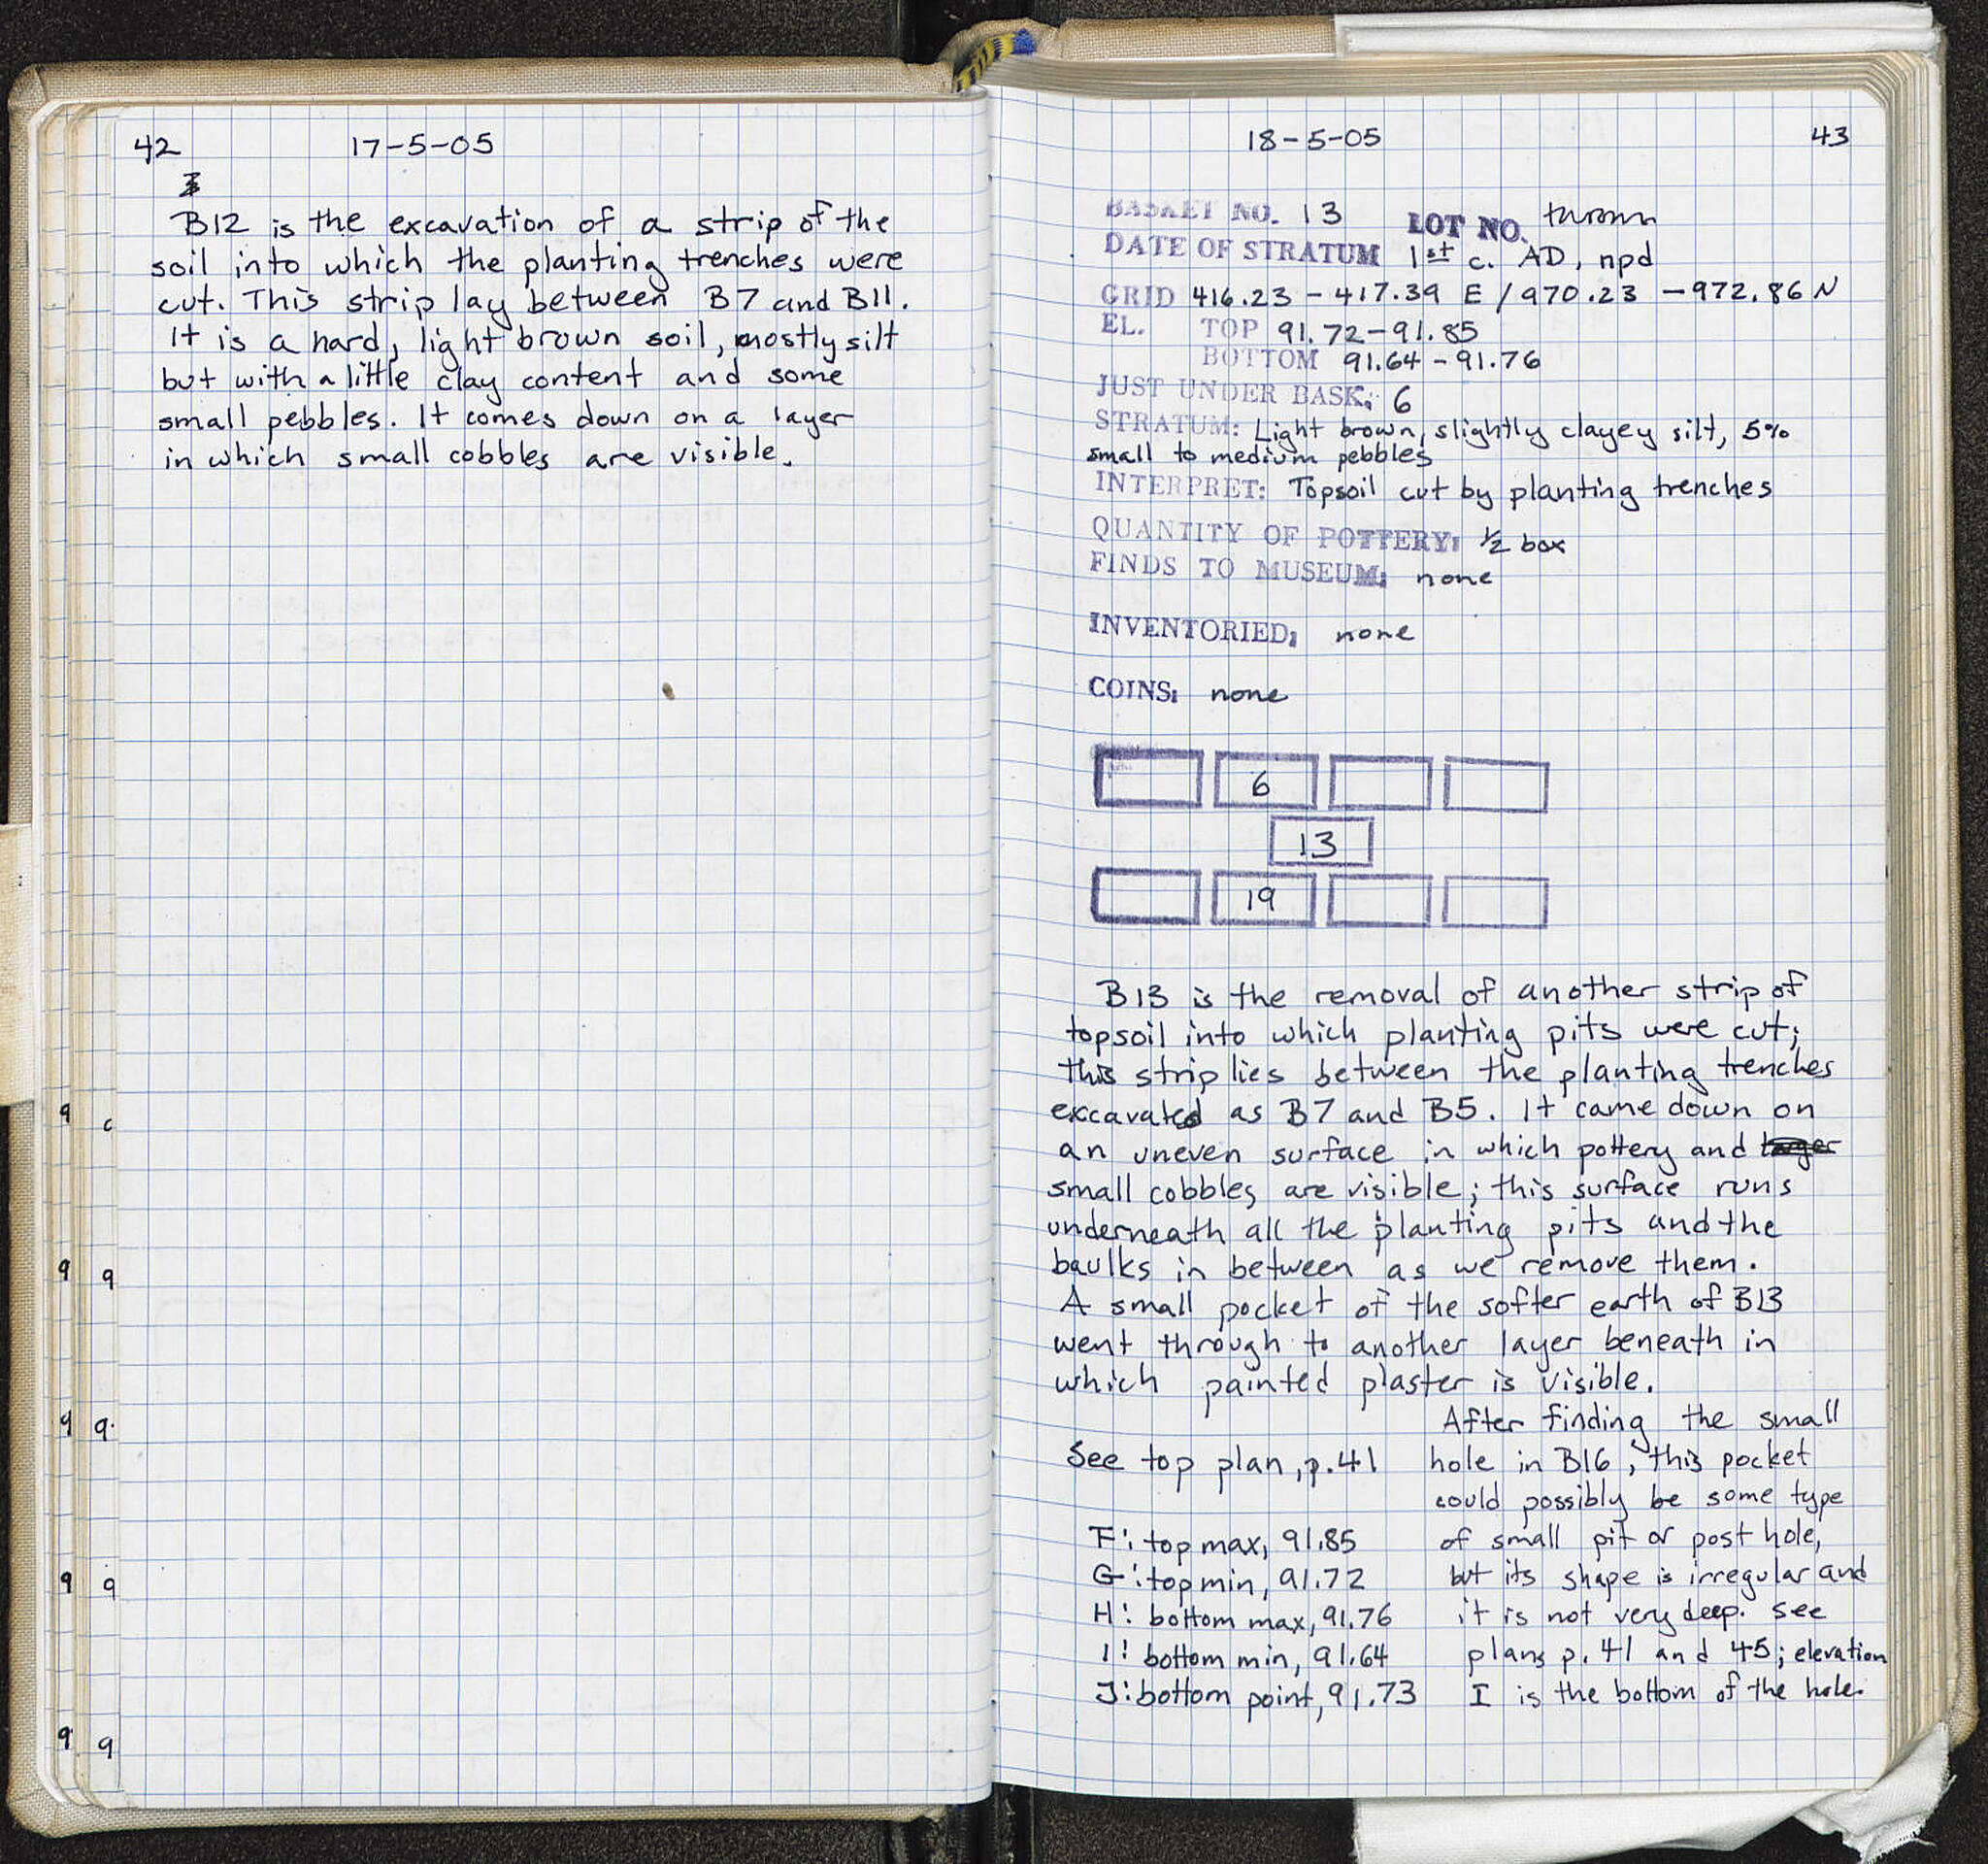 42 17-5-05
B12 is the excavation of a strip of the
soil into which the planting trenches were
cut. This strip lay between B7 and B11.
It is a hard, light brown soil, mostly silt
but with a little clay content and some
small pebbles. It comes down on a layer
in which small cobbles are visible.
18-5-05 43
BASKET NO. 13 LOT NO. thrown
DATE OF STRATUM 1st c. AD, npd
GRID 416.23 - 417.39 E / 970.23 - 972.86 N
EL. TOP 91.72-91.85
BOTTOM 91.64-91.76
JUST UNDER BASK: 6
STRATUM: Light brown, slightly clayey silt, 5%
small to medium pebbles
INTERPRET: Topsoil cut by planting trenches
QUANTITY OF POTTERY: ½ box
FINDS TO MUSEUM: none
INVENTORIED: none
COINS: none
6
13
19
B13 is the removal of another strip of
topsoil into which planting pits were cut;
this strip lies between the planting trenches
excavated as B7 and B5. It came down on
an uneven surface in which pottery and larger
small cobbles are visible; this surface runs
underneath all the planting pits and the
baulks in between as we remove them.
A small pocket of the softer earth of B13
went through to another layer beneath in
which painted plaster is visible.
After finding the small
hole in B16, this pocket
could possibly be some type
of small pit or post hole,
but its shape is irregular and
it is not very deep. See
plans p. 41 and 45; elevation
I is the bottom of the hole.
See top plan, p. 41
F: top max, 91.85
G: top min, 91.72
H: bottom max, 91.76
I: bottom min, 91.64
J: bottom point, 91.73
9 c
9 9
9 9
9 9
9 9